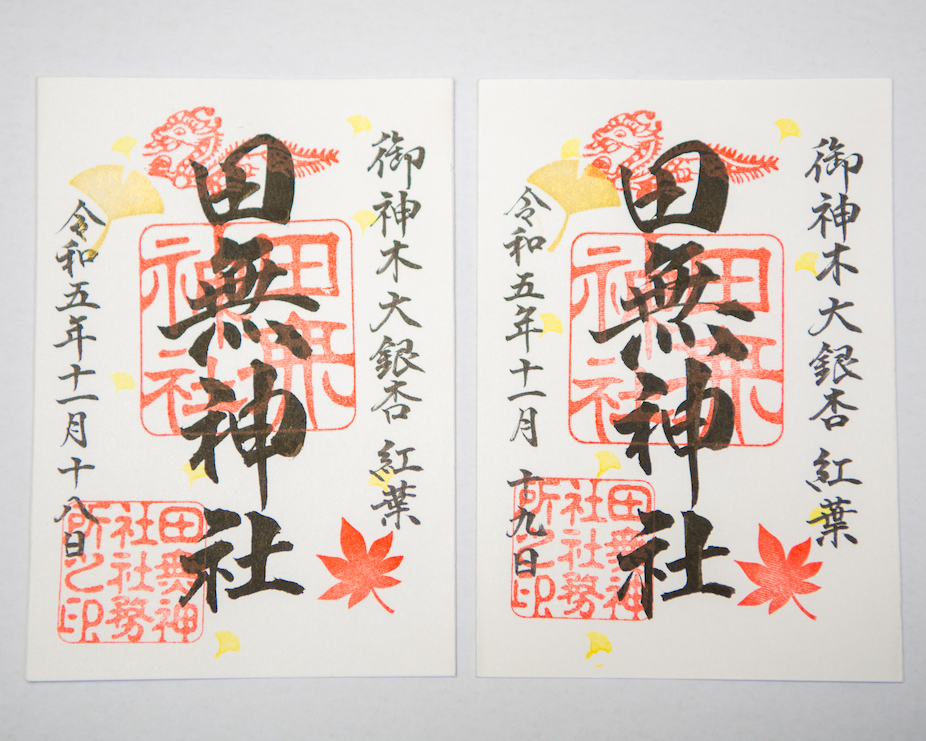 御神木大銀杏 紅葉
田無神社
令和五年十一月十八日
田無神社
田無神社社務所之印
御神木大銀杏 紅葉
田無神社
令和五年十一月十九日
田無神社
田無神社社務所之印